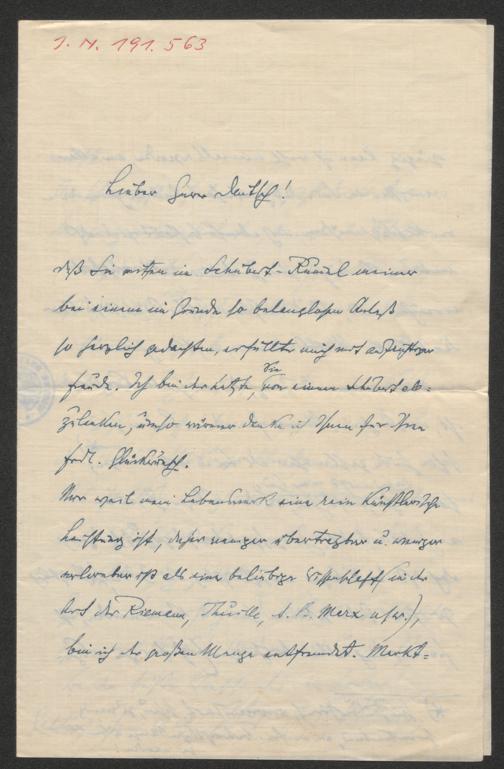 J. N. 191.563
Lieber Herr Deutsch!
daß Sie mitten im Schubert-Rummel meiner
bei einem im Grunde so belanglosen Anlaß
so herzlich gedachten, erfüllte mich mit aufrichtiger
Freude. Ich bin der letzte, Sie von einem Schubert ab=
zulenken, umso wärmer danke ich Ihnen für Ihren
frdl. Glückwunsch.
Nur weil mein Lebenswerk eine rein künstlerische
Leistung ist, daher weniger übertragbar u. weniger
erlernbar ist als eine beliebige Wissenschaft (in der
Art der Riemann, Thuille, A. B. Marx usw.),
bin ich der großen Menge entfremdet. Merkt=